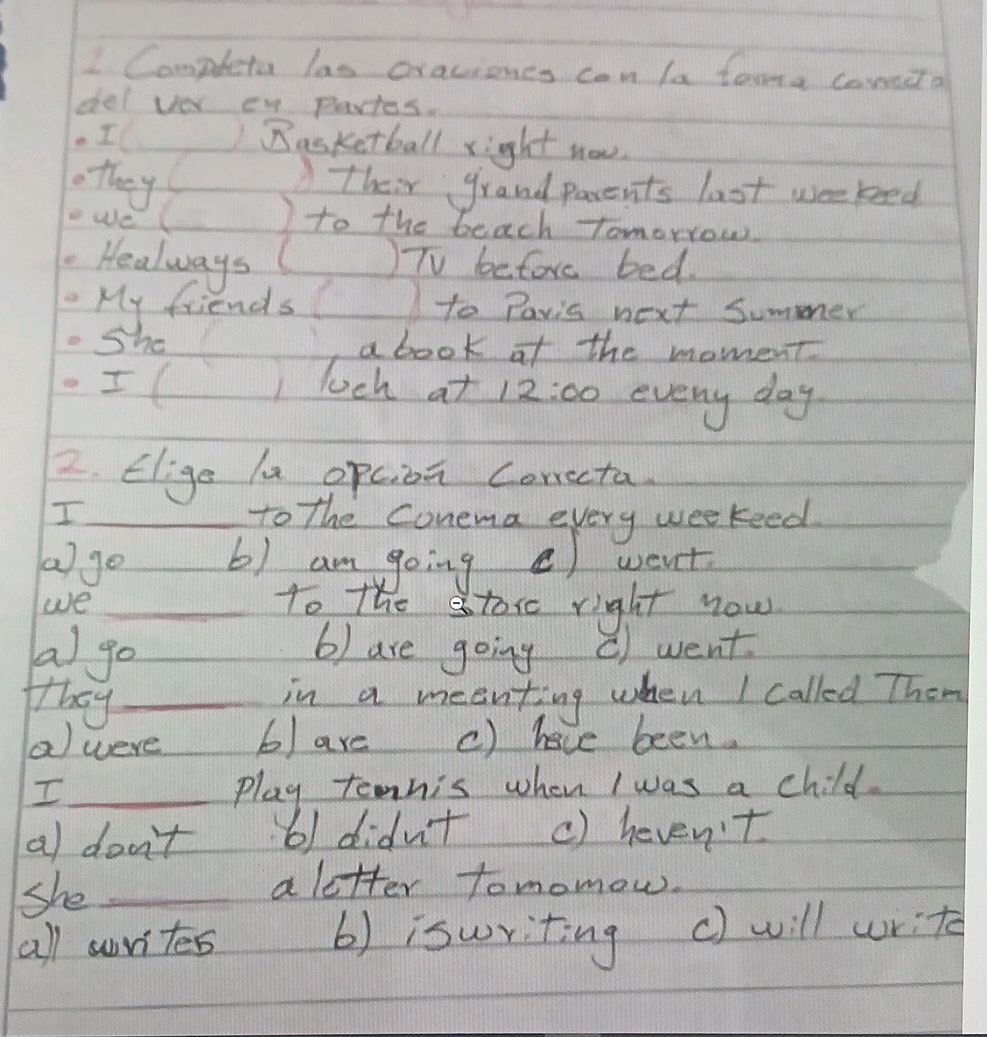 1. Completa las oraciones con la forma correcta
del ver en Partes.
• I ( ) Basketball right now.
• They ( ) Their grandparents last weekeed
• we ( ) to the beach Tomorrow.
• Healways ( ) TV before bed.
• My friends ( ) to Paris next Summer
• She ( , a book at the moment.
• I ( ) luch at 12:00 eveny day.
2. Elige la opción Correcta.
I ______ to The Conema every weekeed.
a) go b) am going c) went.
we ______ To The store right now
a) go b) are going c) went.
They ______ in a meenting when I called Them
a) were b) are c) have been.
I ______ Play tennis when I was a child.
a) don't b) didn't c) heven't.
She ______ a letter tomomow.
a)) writes b) iswriting c) will write